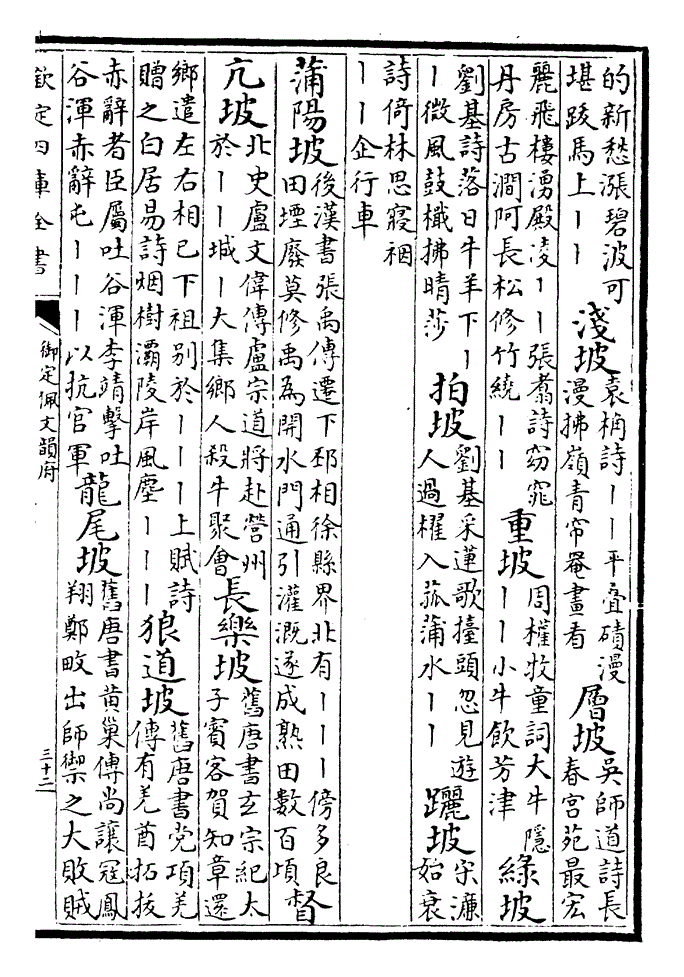 的新愁漲碧波可
堪踆馬上丨丨
淺坡
袁桷詩丨丨平疊磧漫
漫拂嶺青帘罨畫看
層坡
吳師道詩長
春宮苑最宏
麗飛樓湧殿凌丨丨張翥詩窈窕
丹房古澗阿長松修竹繞丨丨
重坡
周權牧童詞大牛隱
丨丨小牛飲芳津
綠坡
劉基詩落日牛羊下丨
丨微風鼓檝拂晴莎
拍坡
劉基采蓮歌擡頭忽見遊
人過櫂入菰蒲水丨丨
躧坡
宋濂
始衰
詩倚林思寢裀
丨丨企行車
蒲陽坡
後漢書張禹傳遷下邳相徐縣界北有丨丨丨傍多良
田堙廢莫修禹為開水門通引灌溉遂成熟田數百頃
督
亢坡
北史盧文偉傳盧宗道將赴營州
於丨丨城丨大集鄉人殺牛聚會
長樂坡
舊唐書玄宗紀太
子賓客賀知章還
鄉遣左右相已下祖别於丨丨丨上賦詩
贈之白居易詩烟樹灞陵岸風塵丨丨丨
狼道坡
舊唐書党項羌
傳有羌酋拓拔
赤辭者臣屬吐谷渾李靖擊吐
谷渾赤辭屯丨丨丨以抗官軍
龍尾坡
舊唐書黄巢傳尚讓寇鳳
翔鄭畋出師禦之大敗賊
欽定四庫全書
御定佩文韻府
三十二